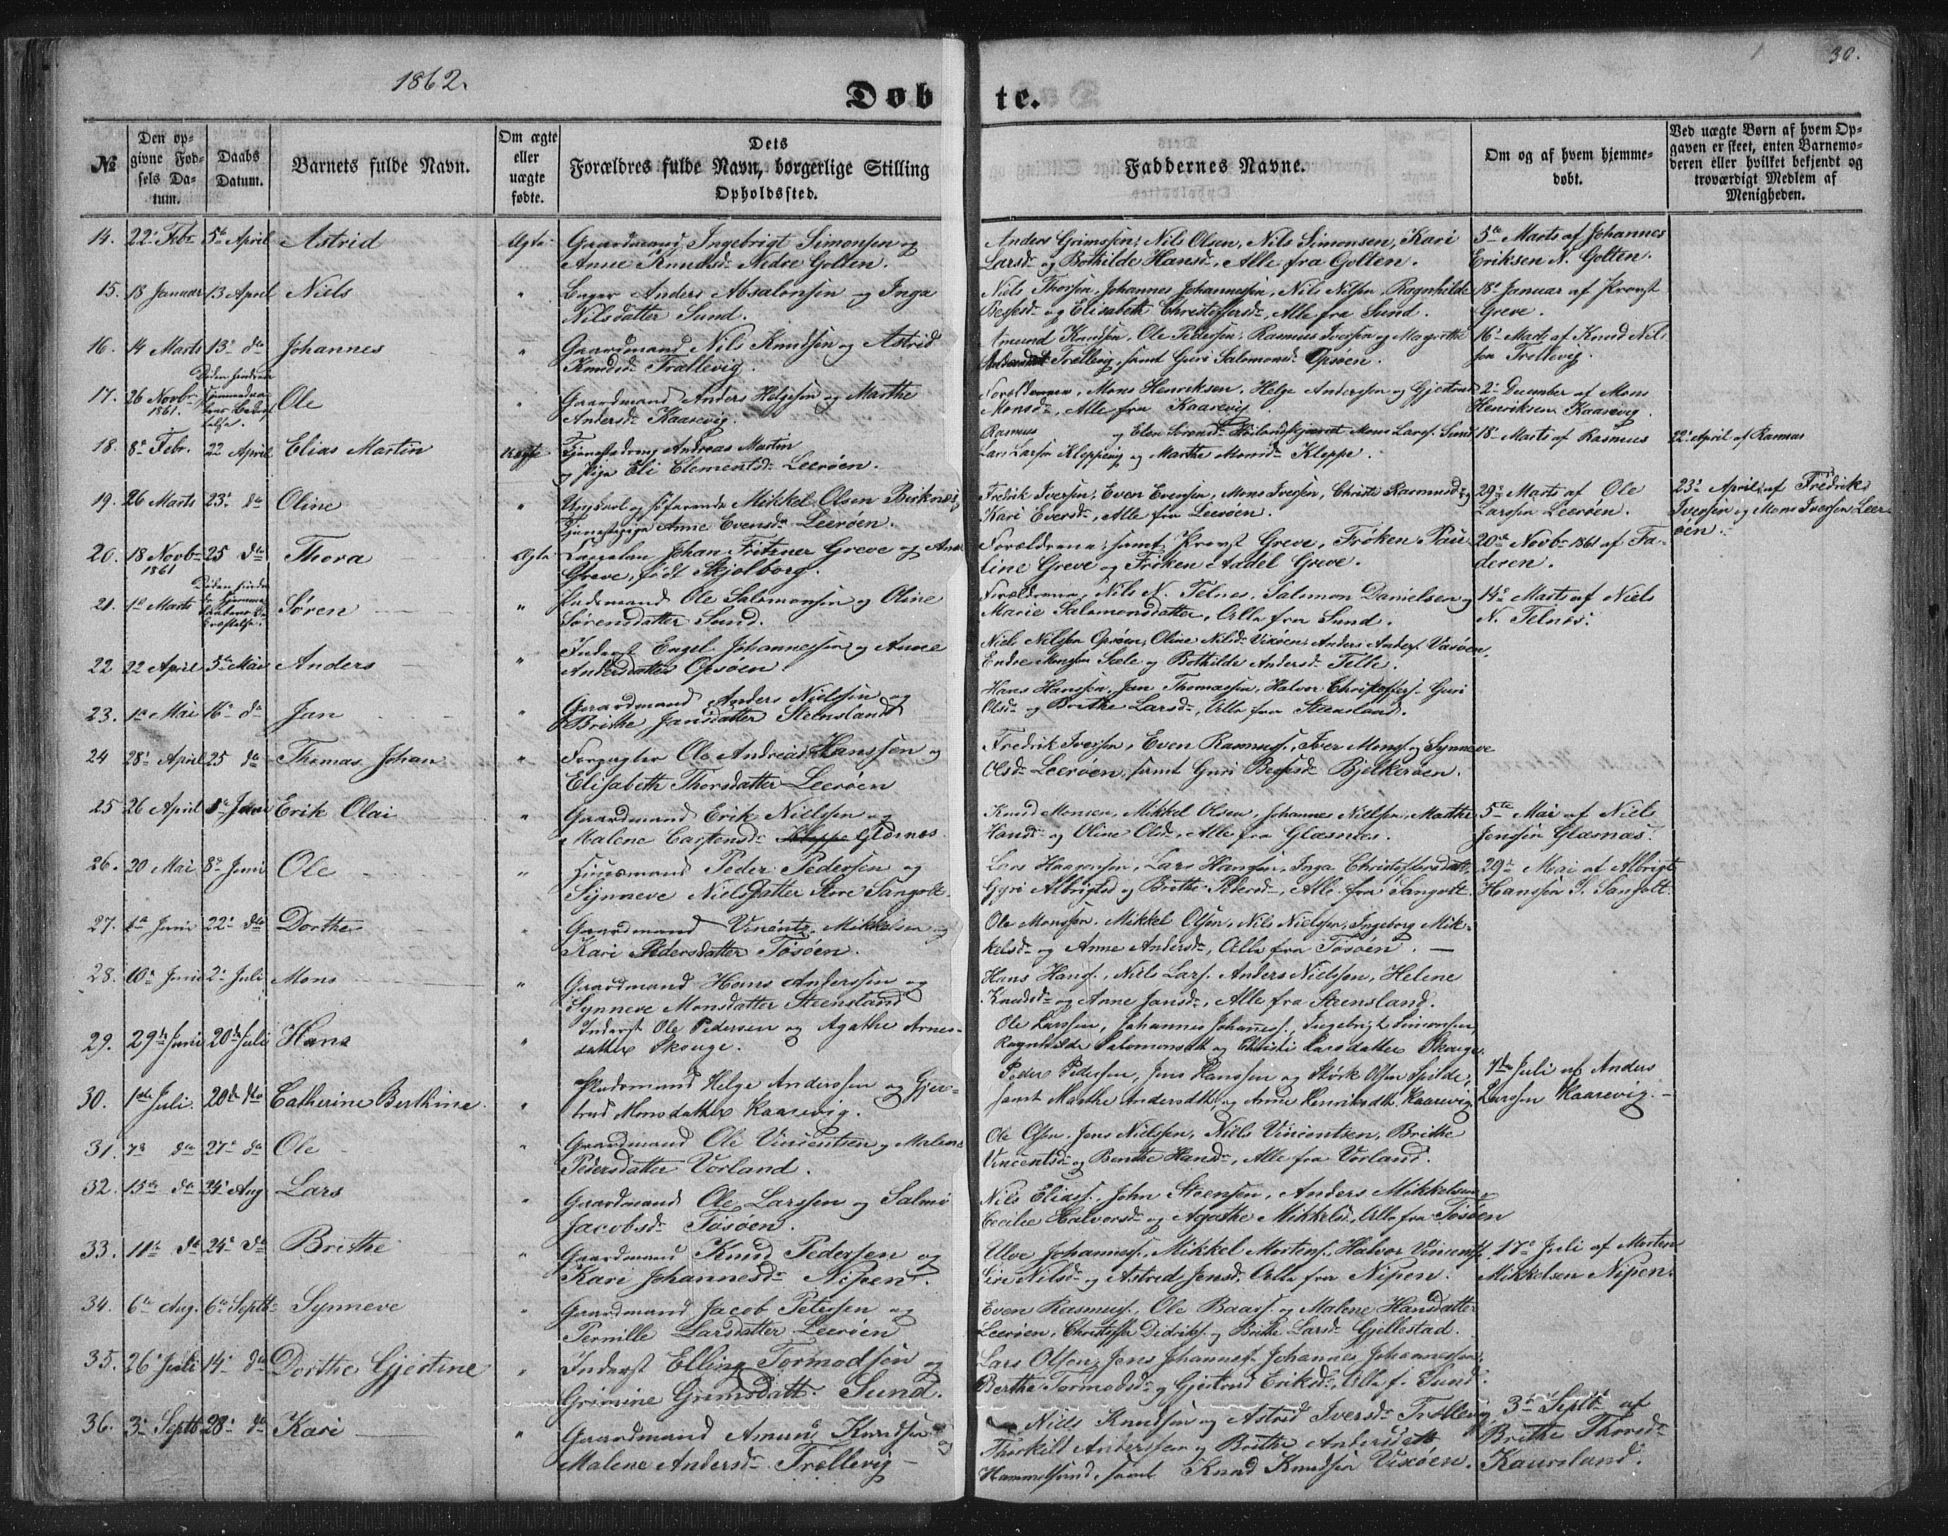 1862.
30.
Døbte.
№
Den opgivne Fødsels Datum.
Daabs Datum.
Barnets fulde Navn.
Om ægte eller uægte fødte.
Dets Forældres fulde Navn, borgerlige Stilling Opholdssted.
Faddernes Navne.
Om og af hvem hjemmedøbt.
Ved uægte Børn af hvem Opgaven er skeet, enten Barnemoderen eller hvilket bekjendt og troværdigt Medlem af Menigheden.
14. 22 Febr 5te April Astrid Ægte Gaardmand Ingebrigt Simonsen og
Anne Knudsd. Nedre Golten.
Anders Grimssen, Nils Olsen, Nils Simonsen, Kari
Larsd. og Bothilde Hansd., Alle fra Golten.
5te Marts af Johannes
Eriksen N. Golten.
15. 18 Januar 13 April Niels " Anders Absalonsen og Inga
Nilsdatter Sund.
Niels Thorsen, Johannes Johannessen, Nils Nilsen, Ragnhilde
og Elisabeth Christoffersd., Alle fra Sund.
18. Januar af Provst
Greve.
16. 14 Marts 13. do Johannes " Gaardmand Nils Knudsen og Astrid
Knudsd. Trællevig.
Amund Knudsen, Ole Pedersen, Rasmus Iversen og Margrethe
Trællevig, samt Guri Salomonsd. Opsøen.
16. Marts af Knud Nils
fra Trellevig.
17. 26 Novbr 1861. Ole " Gaardmand Anders Helgesen og Marthe
Andersd. Kaarevig.
Mons Henriksen, Helge Anderssen og Gjertrud
Monsd., Alle fra Kaarevig.
2. December af Mons
Henriksen Kaarevig.
18. 8. Febr. 22 April Elias Martin Uægte Andreas Martin
og Pige Eli Clementsd. Leerøen.
Rasmus og Elen Sørensd. Mons Lars. Sund
Lars Larsen Kleppevig og Marthe Monsd. Kleppe.
18. Marts af Rasmus
22. April af Rasmus
19. 26 Marts 23. do Oline " Ungkarl og Mikkel Olsen Birknes,
Tjenestepige Anne Evensd. Leerøen.
Fredrik Iversen, Even Evensen, Mons Iversen, Christi Rasmusd. og
Kari Eversd., Alle fra Leerøen.
29. Marts af Ole
Larssen Leerøen.
23. April af Fredrik
Iversen og Mons Iversen Leerøen.
20. 18 Novb. 1861 25 do Thora Ægte Johan Fritzner Greve og
Greve, født Skjolborg.
Forældrene, samt Provst Greve, Frøken Pauline
Greve og Frøken Aadel Greve.
20de Novb. 1861 af Faderen.
21. 1ste Marts Søren " Ole Salomonsen og Oline
Sørensdatter Sund.
Forældrene, Nils N. Telnes, Salomon Danielsen og
Marie Salomonsdatter, Alle fra Sund.
14. Marts af Niels
N. Telnæs.
22 22 April 3. Mai Anders " Inderst Engel Johannessen og Anne
Andersdatter Opsøen.
Niels Nielsen Opsøen, Oline Nilsd. Vixøen, Anders Anders. Vixøen,
Endre Monsen Sæle og Bothilde Andersd. Telle.
23. 1ste Mai 16. do Jan " Gaardmand Anders Nielssen og
Brithe Jansdatter Stensland
Hans Hanssen, Jan Thomassen, Halvor Christoffers. Guri
Olsd. og Brithe Larsd., Alle fra Steensland.
24 28. April 25 do Thomas Johan " Forpagter Ole Andreas Hanssen og
Elisabeth Thorsdatter Leerøen
Fredrik Iverssen, Even Rasmuss., Iver Mons. og Synneve
Olsd. Leerøen, samt Guri Bjelkerøen.
25 26 April Juni Erik Olai " Gaardmand Erik Nielssen og
Malene Carstensd. Glæsnes.
Knud Monsen, Mikkel Olsen, Johannes Nielsen, Marthe
Hansd. og Oline Olsd., Alle fra Glæsnes.
5te Mai af Niels
Jenssen Glæsnæs.
26. 20 Mai 8. Juni Ole " Huusmand Peder Pedersen og
Synneve Nielsdatter Store Sangolt.
Lars Haagensen, Lars Hanssen, Inga Christoffersdatt.
Gyri Albrigtsd. og Brithe Alle fra Sangolt.
29. Mai af Albrigt
Hanssen S. Sangolt.
27. 1ste Juni 22. do Dorthe " Gaardmand Vincents Mikkelsen og
Kari Pedersdatter Tøsøen.
Ole Monssen, Mikkel Olsen, Nils Nielsen, Ingeborg Mikkelsd.
og Anne Andersd., Alle fra Tøsøen.
28. 10. Juni 2. Juli Mons " Gaardmand Hans Anderssen og
Synneve Monsdatter Steensland
Hans Hans., Niels Lars. Anders Nielssen, Helene
Knudsd. og Anne Jansd., Alle fra Steensland.
29. 29. Juni 20de Juli Hans Inderst Ole Pedersen og Agathe Arnesdatter
Skouge.
Ole Larssen, Johannes Johanness., Ingebrigt Simonsen,
Ragnhilde Salomonsdtt. og Christi Larsdatter Skouge.
30. 1ste Juli. 20de do Catherine Berthine. " Helge Anderssen og Gjertrud
Monsdatter Kaarevig.
Peder Pedersen, Jens Hanssen og Størk Olsen Spilde,
samt Marthe Andersdtt. og Anne Henriksdtt. Kaarevig.
7de Juli af Anders
Larssen Kaarevig.
31. 7. do 27. do Ole " Gaardmand Ole Vincentsen og Malene
Pedersdatter Vorland.
Ole Olsen, Jens Nielssen, Niels Vincentsen, Brithe
Vincentsd. og Benthe Hansd., Alle fra Vorland.
32. 13. do 24. Aug Lars " Gaardmand Ole Larssen og Salmo
Jacobsd. Tøsøen.
Nils Elias., John Steensen, Anders Mikkelsen,
Cecilie Halvorsd. og Agathe Mikkelsd., Alle fra Tøsøen
33. 11. do 24. do Brithe " Gaardmand Knud Pedersen og
Kari Johannesd. Nipen.
Ulve Johanness., Mikkel Mortens. Halvor Vincents.
Siri Nilsd. og Astrid Jensd. Alle fra Nipen.
17. Juli af Morten
Mikkelsen Nipen.
34. 6. Aug. 6. Septb. Synneve " Gaardmand Jacob Peterssen og
Pernille Larsdatter Leerøen
Even Rasmus., Ole Baars. og Malene Hansdatter
Leerøen, Christoffer Didriks. og Brithe Larsd. Gjellestad.
35. 26. Juli 14. do Dorthe Gjertine " Inderst Elling Tormodsen og
Grimine Grimsdatt. Sund.
Lars Olsen, Jens Johanness. Johannes Johannessen,
Berthe Tormodsd. og Gjertrud Eriksd., Alle f. Sund.
36. 3. Septb. 28. do Kari " Gaardmand Amund Knudsen og
Malene Andersd. Trællevig
Niels Knudsen og Astrid Iversd. Trællevig,
Thorkild Anderssen og Brithe Andersdatt.
Hammelsund, samt Knud Knudsen Vixøen.
3. Septb. af
Brithe Thorsd.
Kausland.